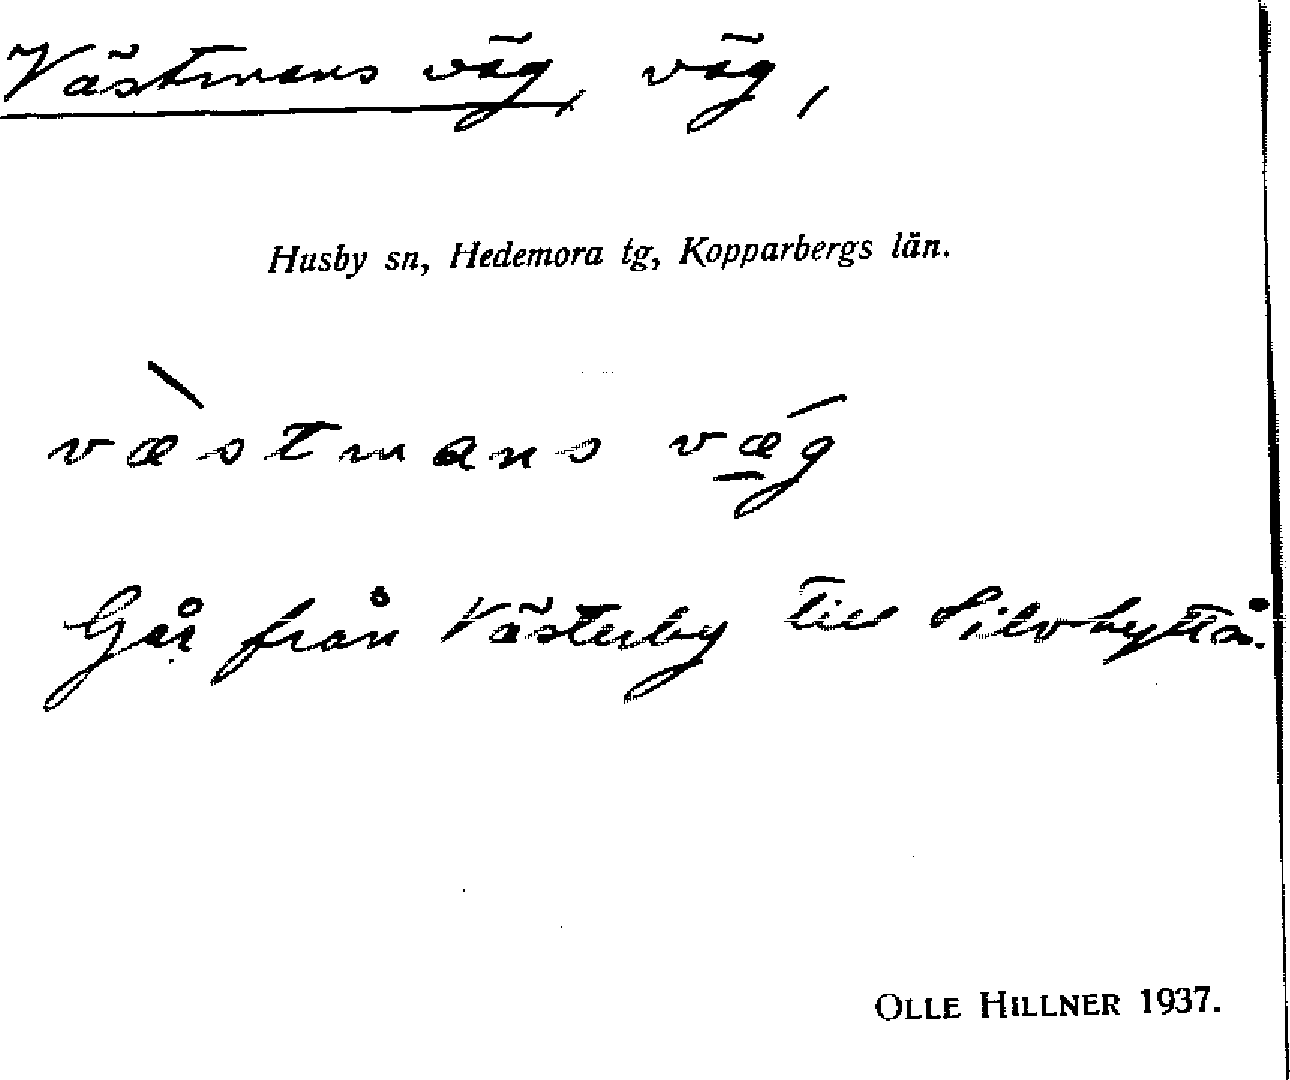 Västmans väg, väg,
Husby sn, Hedemora tg, Kopparbergs län.
væ̀stmans vǽ̱g
Går från Västerby till Silvhyttå.
OLLE HILLNER 1937.